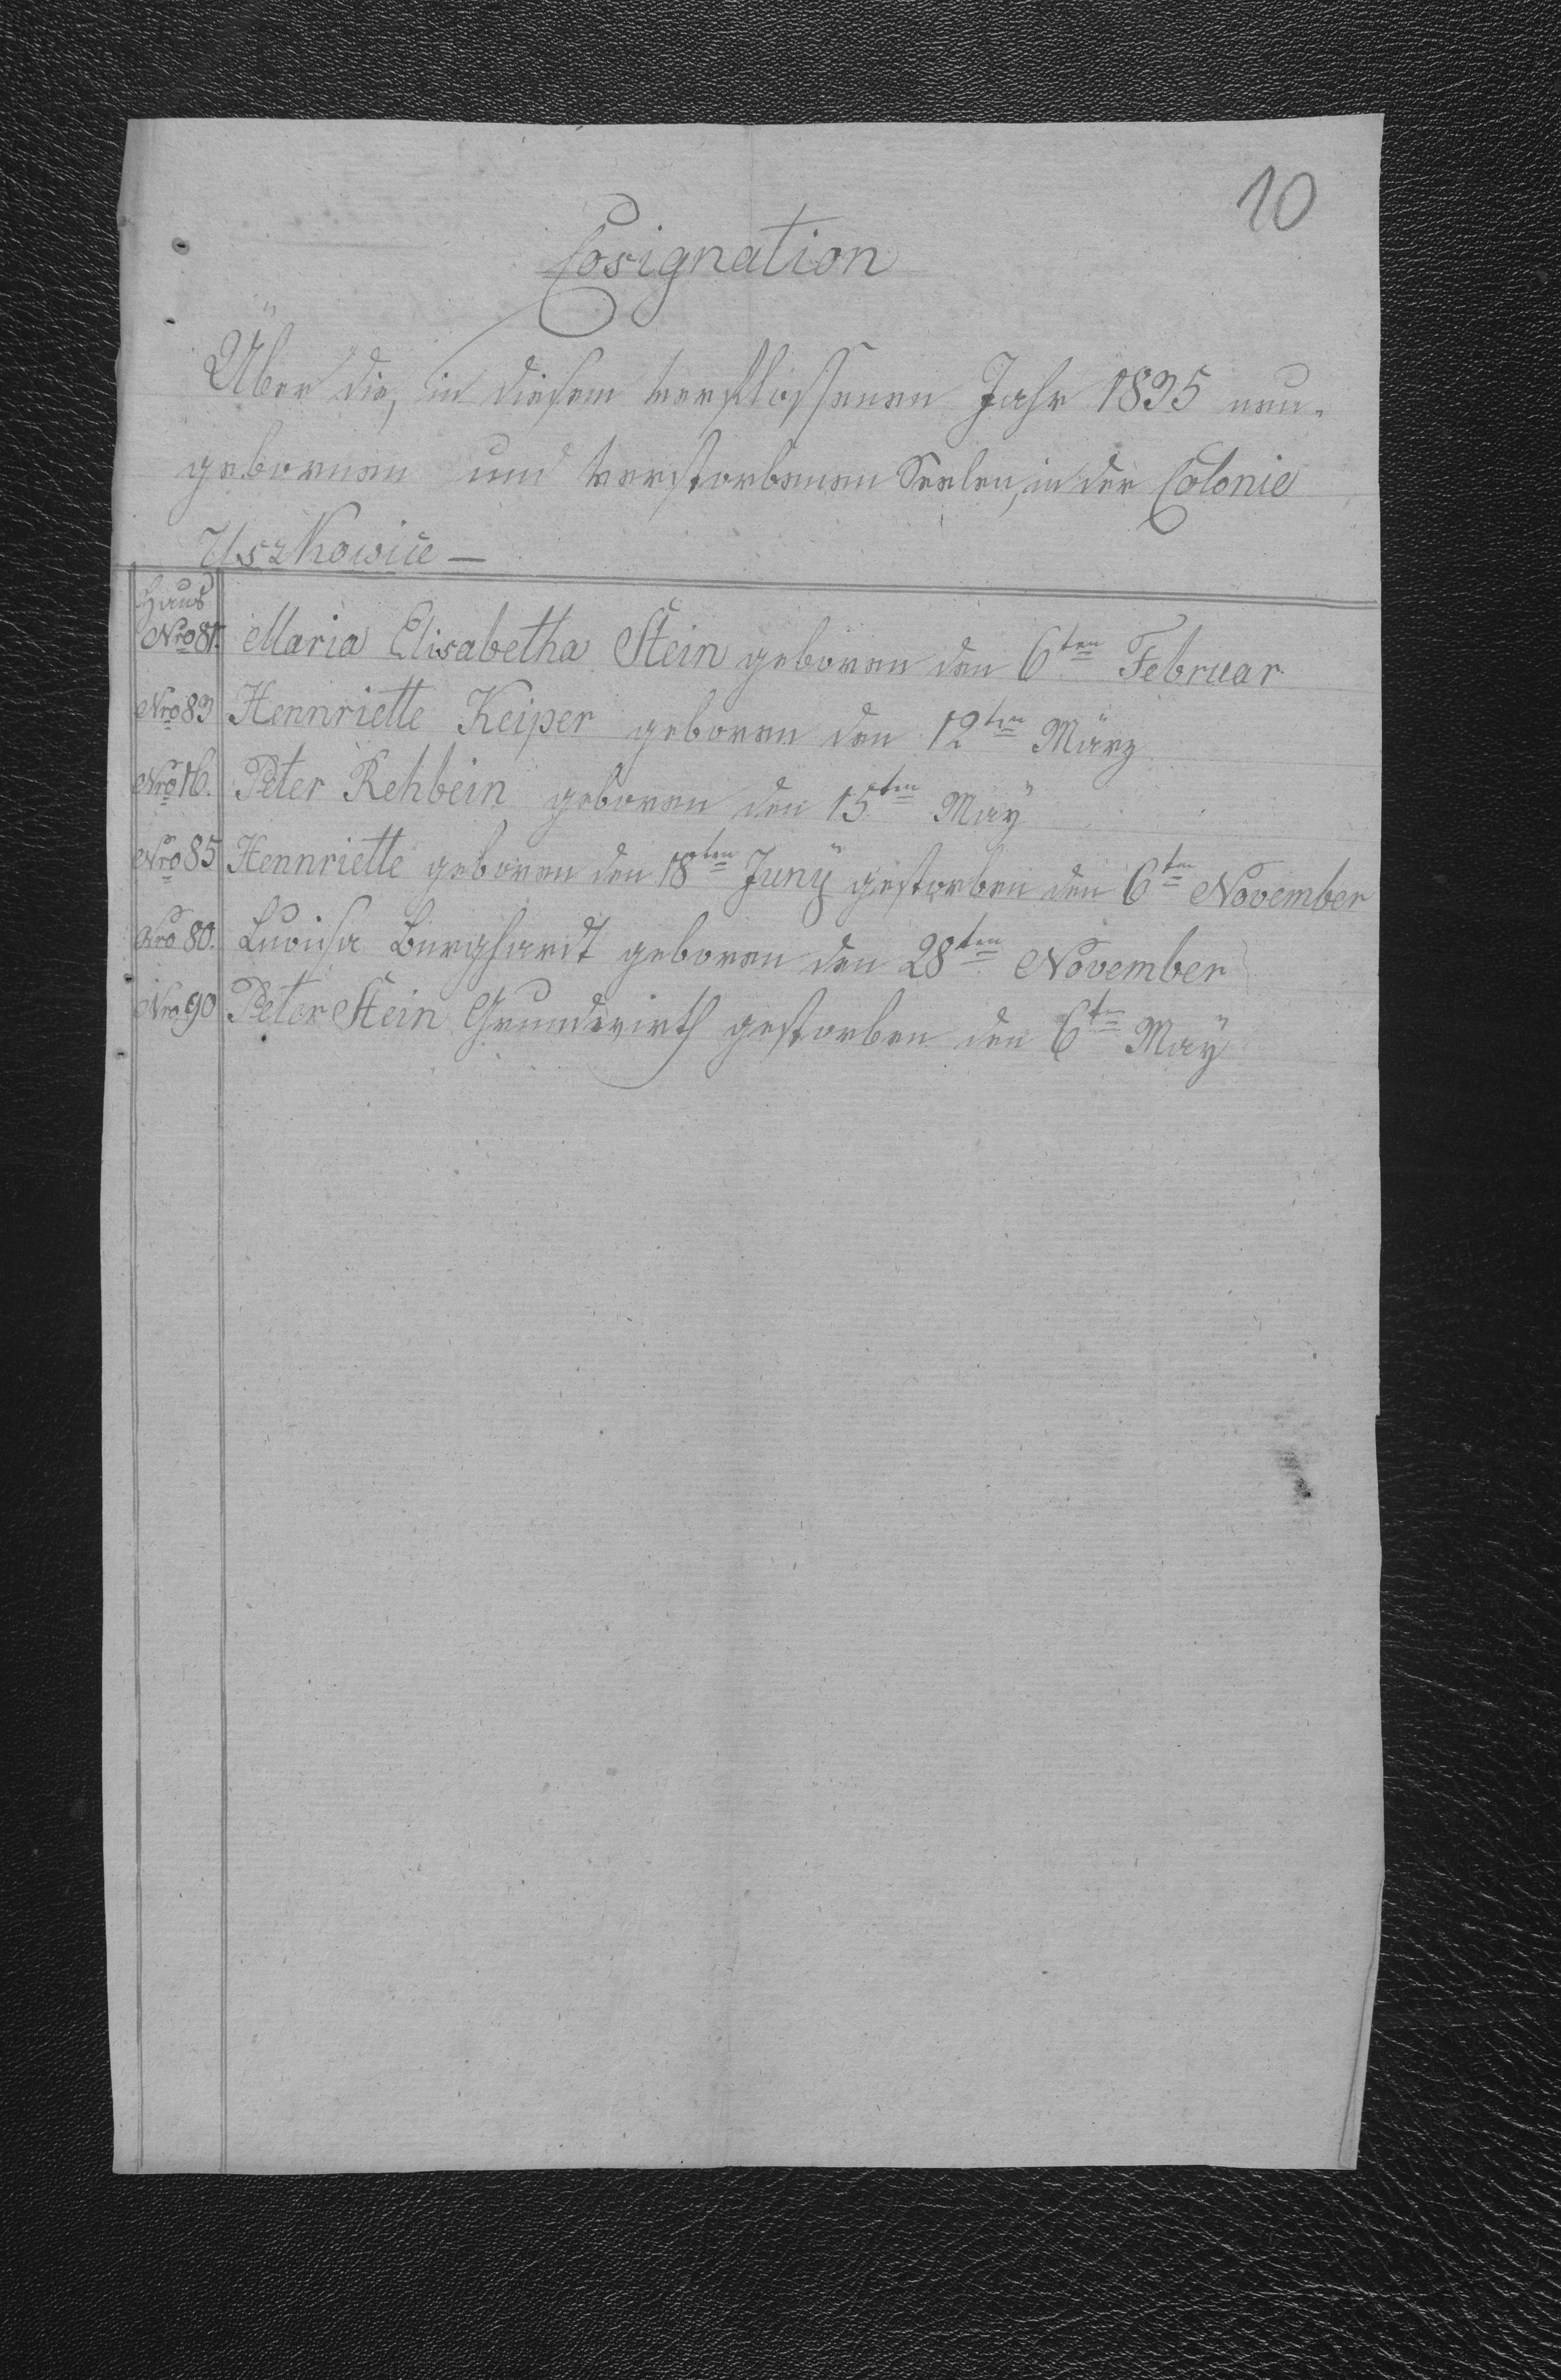 10
Cosignation
Über die, in diesem verflossenen Jahr 1835 neu-
gebornen und verstorbenen Seelen, in der Colonie
Uszkowice —
Haus
Nro 87. Maria Elisabetha Stein geboren den 6ten Februar
Nro 83 Hennriette Keiper geboren den 12ten März
Nro 16. Peter Rehbein geboren den 15ten Maÿ
Nro 85 Hennriette geboren den 18ten Junÿ gestorben den 6ten November
Nro 80. Luoisa Burghardt geboren den 28ten November
Nro 90 Peter Stein Grundwirth gestorben den 6ten Maÿ